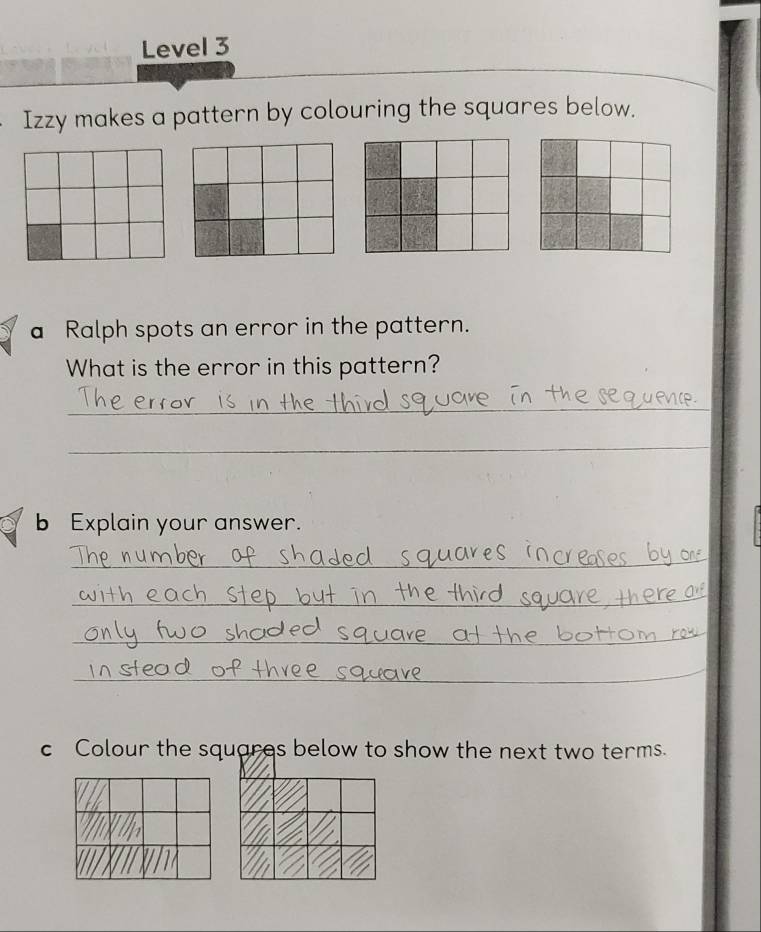 Level 3
Izzy makes a pattern by colouring the squares below.
a Ralph spots an error in the pattern.
What is the error in this pattern?
The error is in the third square in the sequence.
b Explain your answer.
The number of shaded squares increases by one
with each step but in the third square, there are
only two shaded square at the bottom row
instead of three square
c Colour the squares below to show the next two terms.